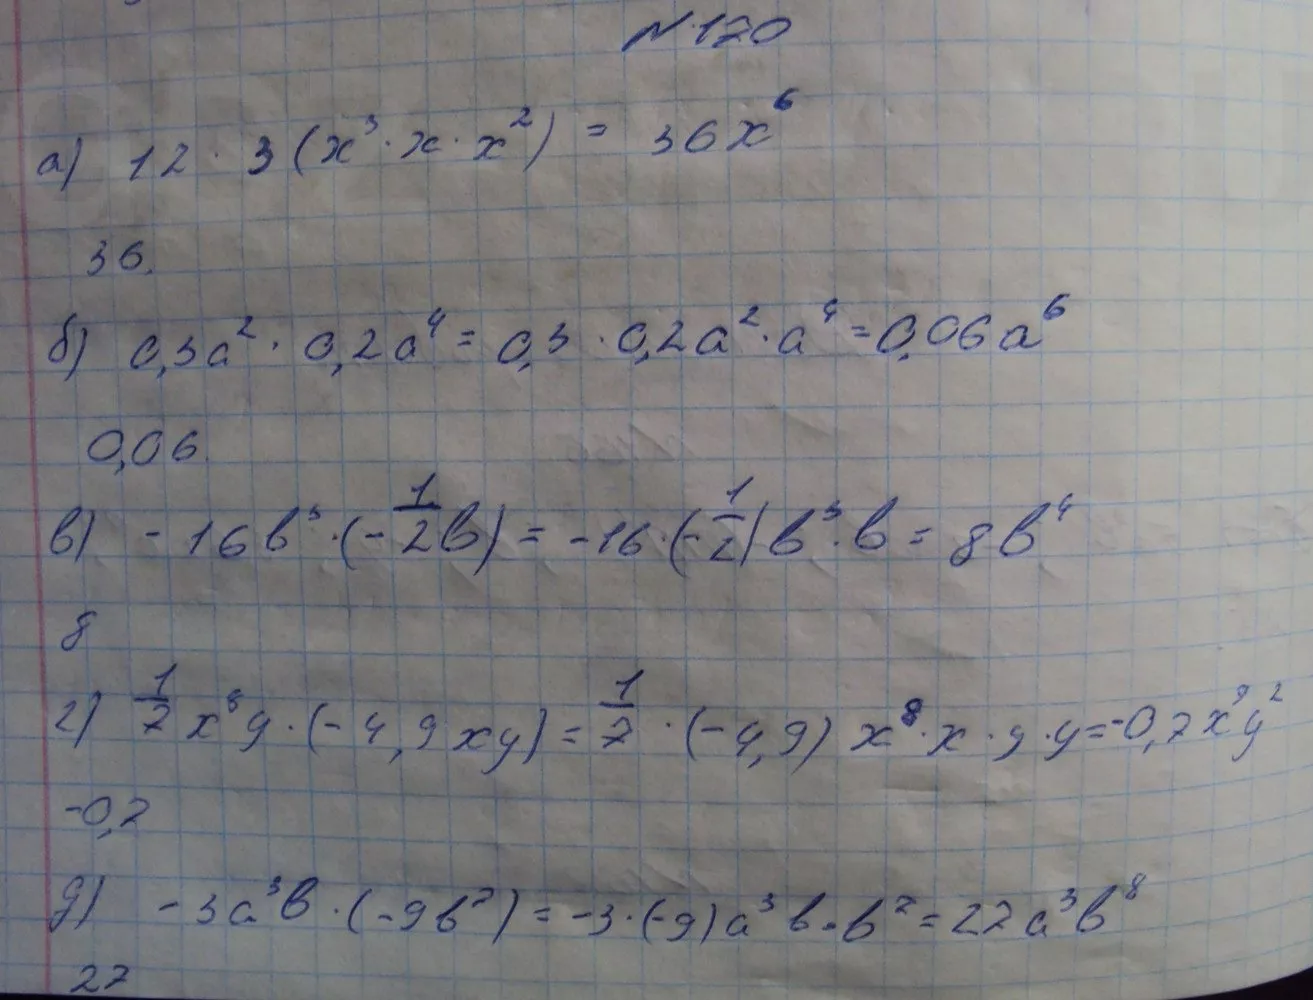 № 170
а) 12 · 3 (x³ · x · x²) = 36x⁶
36.
б) 0,3a² · 0,2a⁴ = 0,3 · 0,2a² · a⁴ = 0,06a⁶
0,06.
в) - 16b³ · (- 1/2 b) = -16 · (- 1/2) b³ · b = 8b⁴
8
г) 1/7 x⁸y · (- 4,9xy) = 1/7 · (- 4,9) x⁸ · x · y · y = -0,7x⁹y²
-0,7
д) - 3a³b · (-9b⁷) = -3 · (-9) a³ b · b⁷ = 27a³b⁸
27